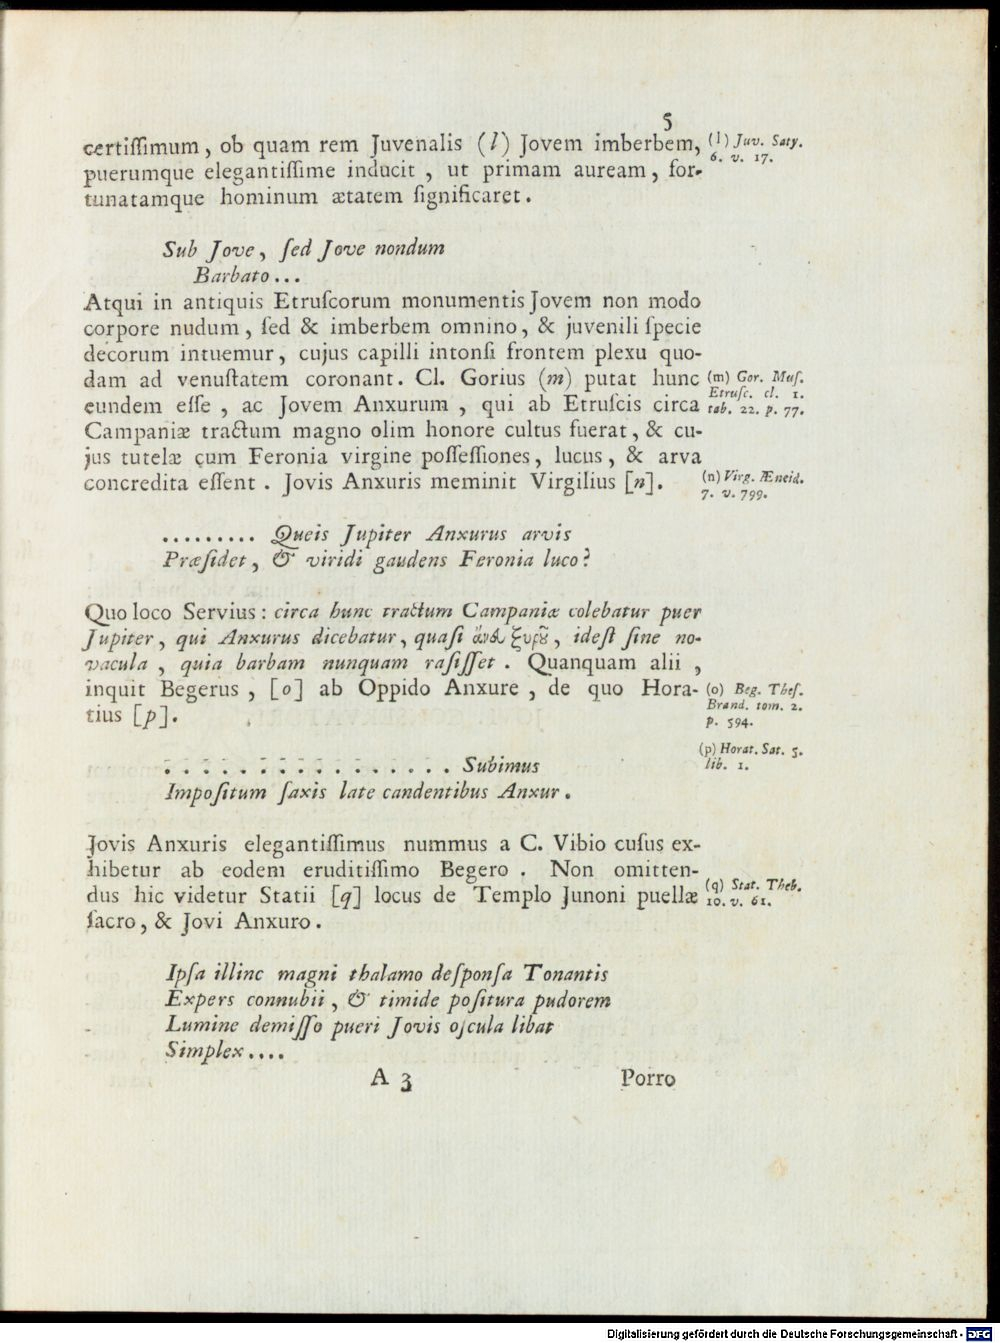 5
certiſſimum, ob quam rem Juvenalis (l) Jovem imberbem,
puerumque elegantiſſime inducit, ut primam auream, for-
tunatamque hominum ætatem ſignificaret.
(l) Juv. Saty.
6. v. 17.
Sub Jove, ſed Jove nondum
Barbato...
Atqui in antiquis Etruſcorum monumentis Jovem non modo
corpore nudum, ſed & imberbem omnino, & juvenili ſpecie
decorum intuemur, cujus capilli intonſi frontem plexu quo-
dam ad venuſtatem coronant. Cl. Gorius (m) putat hunc
eundem eſſe, ac Jovem Anxurum, qui ab Etruſcis circa
Campaniæ tractum magno olim honore cultus fuerat, & cu-
jus tutelæ cum Feronia virgine poſſeſſiones, lucus, & arva
concredita eſſent. Jovis Anxuris meminit Virgilius [n].
(m) Gor. Muſ.
Etruſc. cl. 1.
tab. 22. p. 77.
(n) Virg. Æneid.
7. v. 799.
......... Queis Jupiter Anxurus arvis
Præſidet, & viridi gaudens Feronia luco?
Quo loco Servius: circa hunc tractum Campaniæ colebatur puer
Jupiter, qui Anxurus dicebatur, quaſi ἄνευ ξυροῦ, ideſt ſine no-
vacula, quia barbam nunquam raſiſſet. Quanquam alii,
inquit Begerus, [o] ab Oppido Anxure, de quo Hora-
tius [p].
(o) Beg. Theſ.
Brand. tom. 2.
p. 594.
(p) Horat. Sat. 5.
lib. 1.
................ Subimus
Impoſitum ſaxis late candentibus Anxur.
Jovis Anxuris elegantiſſimus nummus a C. Vibio cuſus ex-
hibetur ab eodem eruditiſſimo Begero. Non omitten-
dus hic videtur Statii [q] locus de Templo Junoni puellæ
ſacro, & Jovi Anxuro.
(q) Stat. Theb.
10. v. 61.
Ipſa illinc magni thalamo deſponſa Tonantis
Expers connubii, & timide poſitura pudorem
Lumine demiſſo pueri Jovis oſcula libat
Simplex....
A 3 Porro
Digitalisierung gefördert durch die Deutsche Forschungsgemeinschaft - DFG